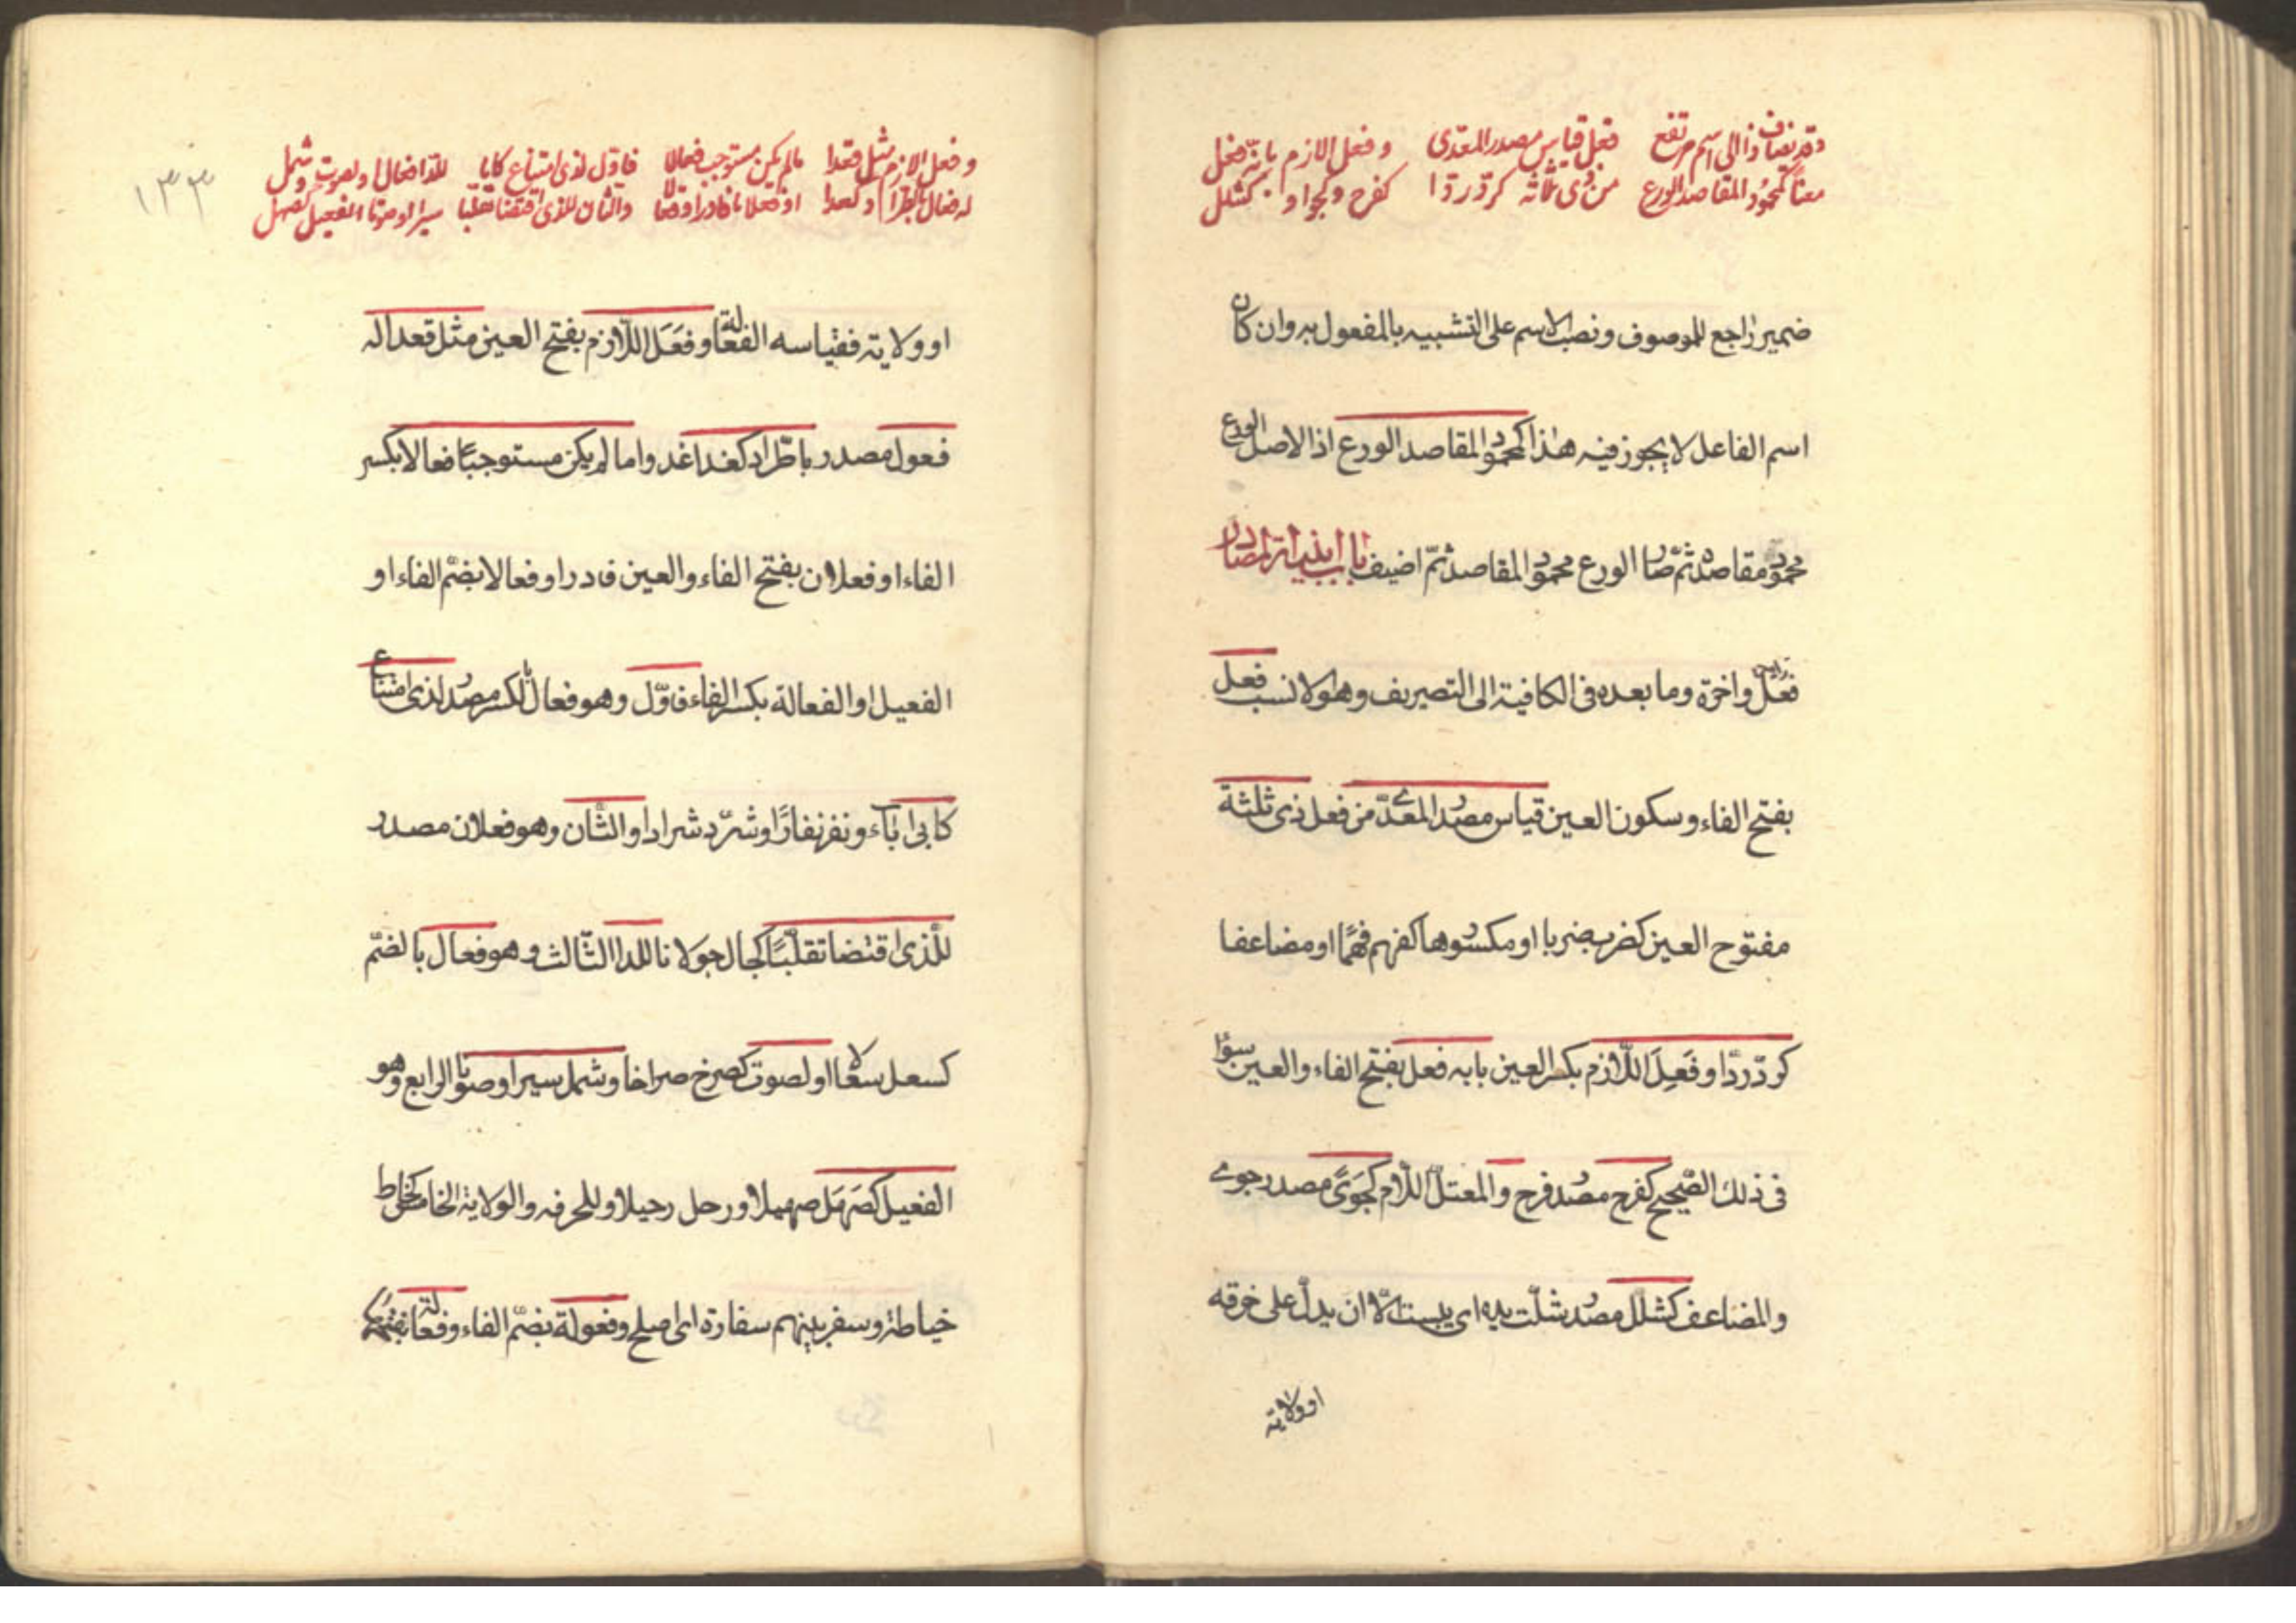 وقد يضاف ذا الى اسم مرتفع فعل قياس مصدر المعدّى وفعل اللازم بابه فعل
معنًا كمحمود المقاصد الورع من ذى ثلاثة كردّ ردّا كفرح وكجوا وكشلل
ضمير راجع للموصوف ونصب الاسم على التشبيه بالمفعول به وان كان
اسم الفاعل لا يجوز فيه هذا كمحمود المقاصد الورع اذ الاصل الورع
محمود مقاصده ثمّ صار الورع محمود المقاصد ثمّ اضيف باب ابنية المصادر
واخرّه وما بعده فى الكافية الى التصريف وهو لانسب فعل
بفتح الفاء وسكون العين قياس مصدر المعدّى من فعل ذى ثلثة
مفتوح العين كضرب ضربا او مكسورها كفهم فهمًا او مضاعفا
كردّ ردّا وفَعِلَ اللّازم بكسر العين بابه فعل بفتح الفاء والعين سواء
فى ذلك الصّحيح كفرح مصدر فرح والمعتلّ اللّام كجَوًى مصدر جوى
والمضاعف كشلل مصدر شلّت يده اى يبست الّا ان يدلّ على حرفه
او ولاية
١٣٣
وفعل اللازم مثل قعدا مالم يكن مستوجب فعالا فاوّل لذى امتناع كابا للدّا فعال او لصوت وشمل
له فعول باطّراد كغدا او فعلانا فادر او فعالا والثّان للذى اقتضا تقلّبا سيرا وصوتا الفعيل كصهل
او ولاية فقياسه الفعالة وفَعَلَ اللّازم بفتح العين مثل قعدا له
فعول مصدر باطّراد كغدا غدو اما لم يكن مستوجبًا فعالا بكسر
الفاء او فعلان بفتح الفاء والعين فادر او فعالا بضمّ الفاء او
الفعيل او الفعالة بكسر الفاء فاوّل وهو فعال بالكسر مصدر لذى امتناع
كابى اباء ونفر نفارًا وشرّد شرادا والثّان وهو فعلان مصدر
للّذى اقتضا تقلّبًا كجال جولانا للدا الثّالث وهو فعال بالضمّ
كسعل سعالا او لصوت كصرخ صراخا وشمل سيرا وصوتا الرابع وهو
الفعيل كصَهَل صهيلا ورحل رحيلا وللحرفه والولاية الخامس كخاط
خياطة وسفر بينهم سفارة اى صلح وفعولة بضمّ الفاء وفعالة بفتحها